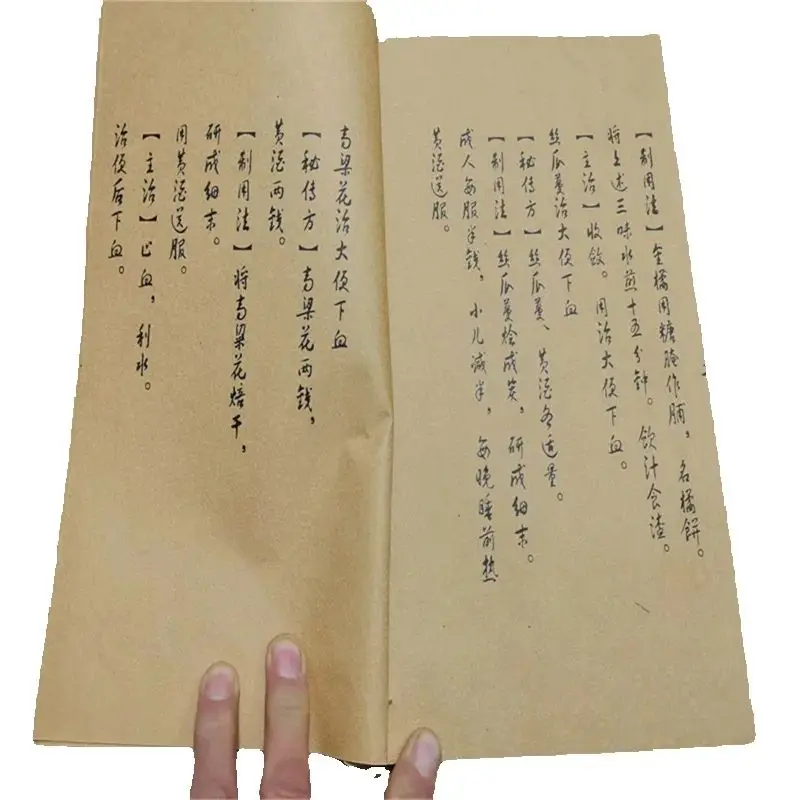 【制用法】金橘用糖腌作脯，名橘餅。
将上述三味水煎十五分钟。饮汁食渣。
【主治】收敛。用治大便下血。
絲瓜蔓治大便下血
【秘传方】絲瓜蔓、黄酒各适量。
【制用法】絲瓜蔓烧成炭，研成细末。
成人每服半钱，小儿减半，每晚睡前热
黄酒送服。
高梁花治大便下血
【秘传方】高梁花两钱，
黄酒两钱。
【制用法】将高梁花焙干，
研成细末。
用黄酒送服。
【主治】止血，利水。
治便后下血。